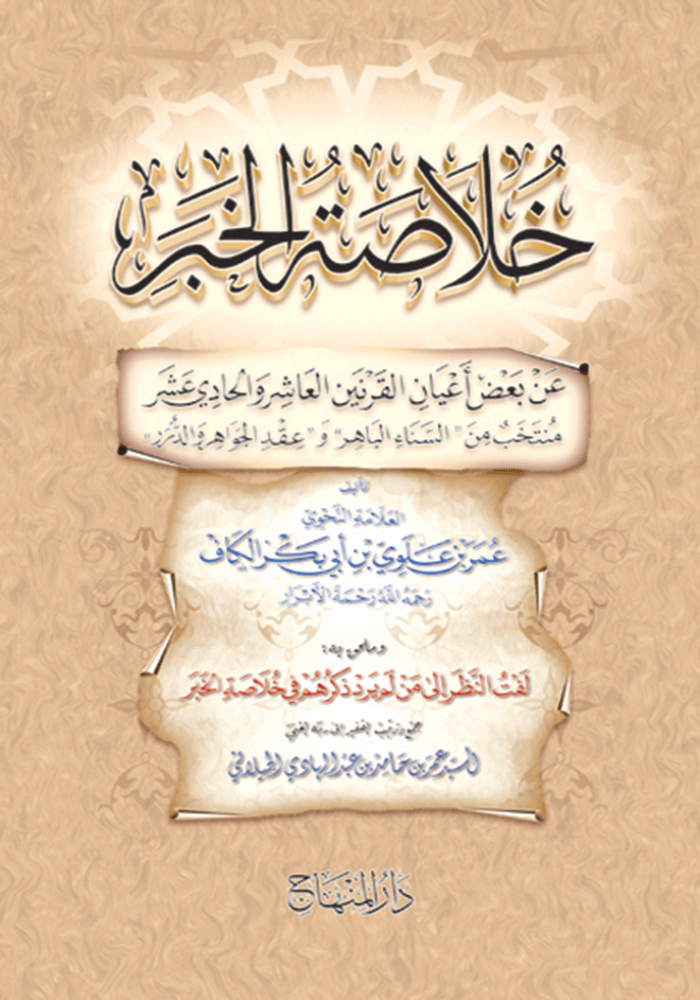 خُلَاصَةُ الخَبَرِ
عَنْ بَعْضِ أَعْيَانِ القَرْنَيْنِ العَاشِرِ وَالحَادِي عَشَرَ
مُنْتَخَبٌ مِنَ "السَّنَاءِ البَاهِرِ" وَ"عِقْدِ الجَوَاهِرِ وَالدُّرَرِ"
تأليف
العَلَّامَةِ النَّحْوِيِّ
عُمَرَ بْنِ عَلَوِيِّ بْنِ أَبِي بَكْرٍ الكَافِ
رَحِمَهُ اللهُ رَحْمَةَ الأَبْرَارِ
وملحق به:
لَفْتُ النَّظَرِ إِلَىٰ مَنْ لَمْ يَرِدْ ذِكْرُهُمْ فِي خُلَاصَةِ الخَبَرِ
جمع وترتيب الفقير إلى ربه الغني
السيد عمر بن حامد بن عبد الهادي الجيلاني
دَارُ المِنْهَاجِ